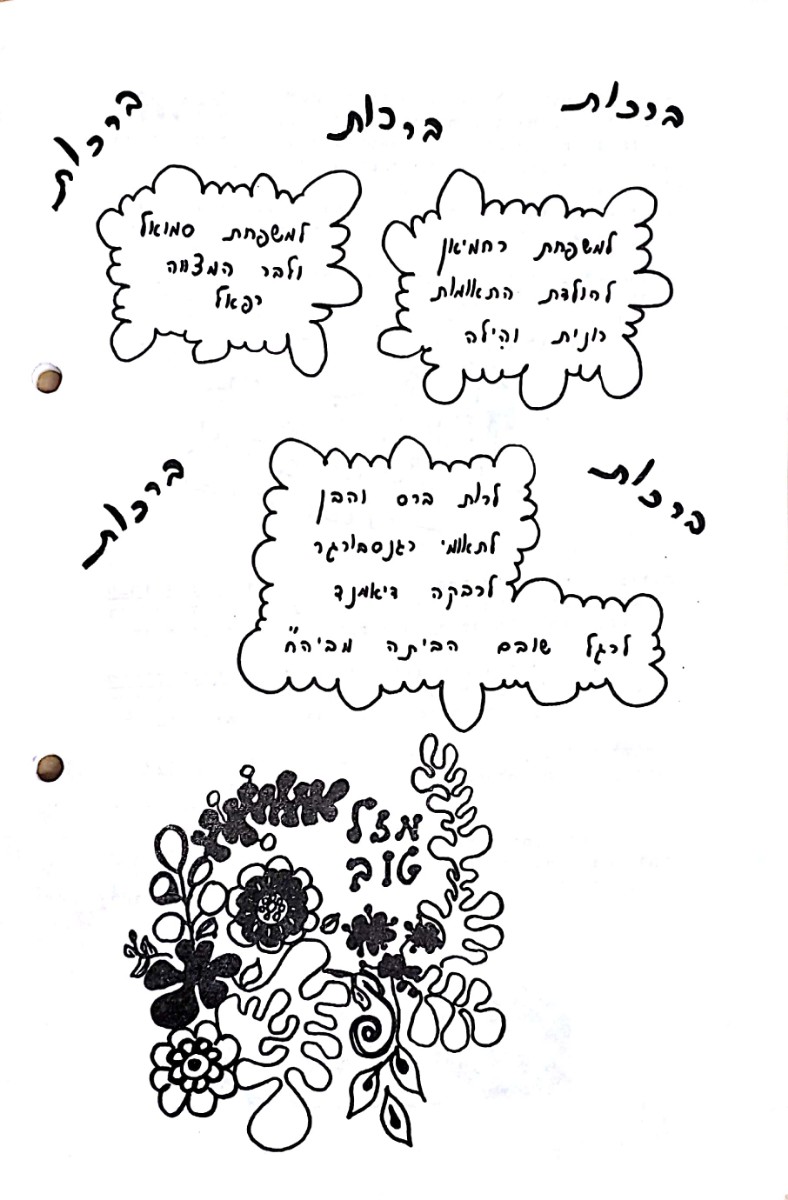 ברכות
ברכות
ברכות
למשפחת רחמיאן
להולדת התאומות
רונית והִילה
למשפחת סמואל
ולבר המצווה
רפאל
ברכות
ברכות
לרות ברס והבן
לתאומי רגנסבורגר
לרבקה דיאמנד
לרגל שובם הביתה מביה״ח
מזל
טוב